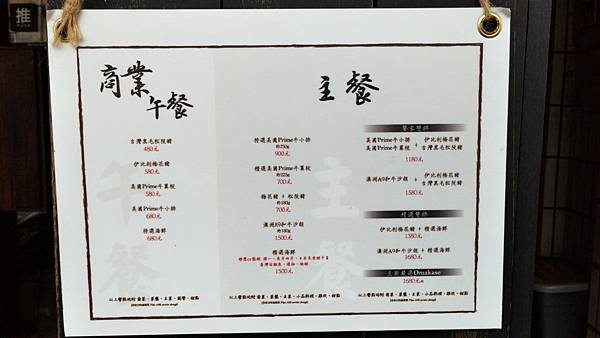 推
商業午餐
台灣黑毛松阪豬
480元
伊比利梅花豬
580元
美國Prime牛翼板
580元
美國Prime牛小排
680元
特選海鮮
680元
以上餐點均附 前菜、菜盤、主菜、副餐、甜點
主餐
特選美國Prime牛小排
約250g
900元
精選美國Prime牛翼板
約225g
700元
梅花豬 + 松阪豬
約180g
700元
澳洲A9和牛沙朗
約180g
1500元
精選海鮮
1500元
饗宴雙拼
美國Prime牛小排
美國Prime牛翼板
+
伊比利梅花豬
台灣黑毛松阪豬
1180元
澳洲A9和牛沙朗 +
伊比利梅花豬
台灣黑毛松阪豬
1580元
精選雙拼
伊比利梅花豬 + 精選海鮮
1380元
澳洲A9和牛沙朗 + 精選海鮮
1680元
主廚嚴選Omakase
1680元
以上餐點均附 前菜、菜盤、主菜、小品料理、雜炊、甜點
午餐
主餐